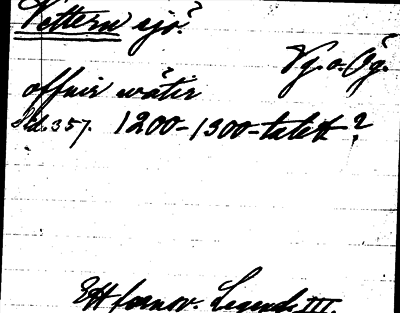 Vettern sjö.
Vg. o. Ög.
offuir wätir
Sd. 357. 1200-1300-talet?
Ett fornsv. Legend. III.